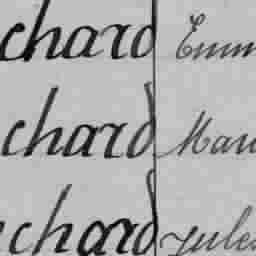 chard Emm
chard Mau
chard Jules